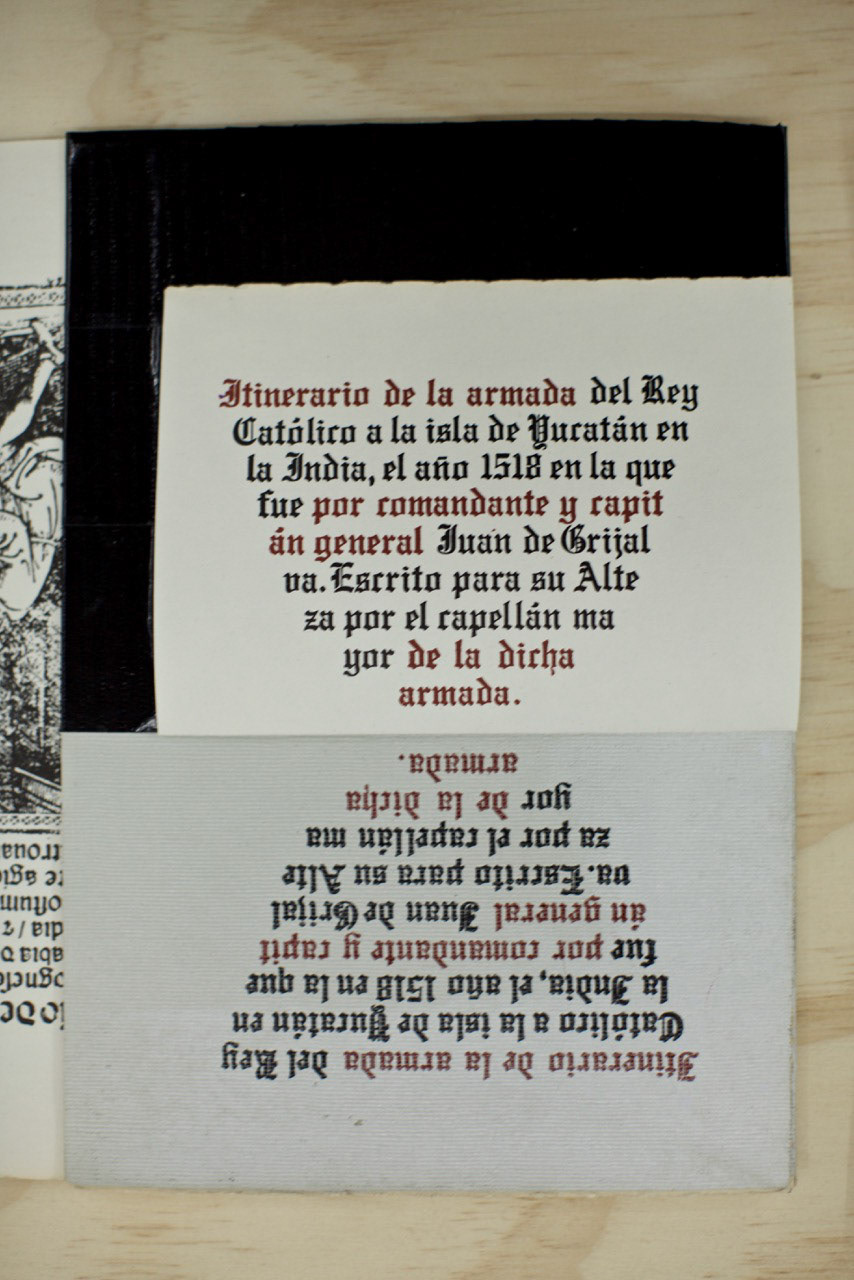 Itinerario de la armada del Rey
Católico a la isla de Yucatán en
la India, el año 1518 en la que
fue por comandante y capit
án general Juan de Grijal
va. Escrito para su Alte
za por el capellán ma
yor de la dicha
armada.
Itinerario de la armada del Rey
Católico a la isla de Yucatán en
la India, el año 1518 en la que
fue por comandante y capit
án general Juan de Grijal
va. Escrito para su Alte
za por el capellán ma
yor de la dicha
armada.